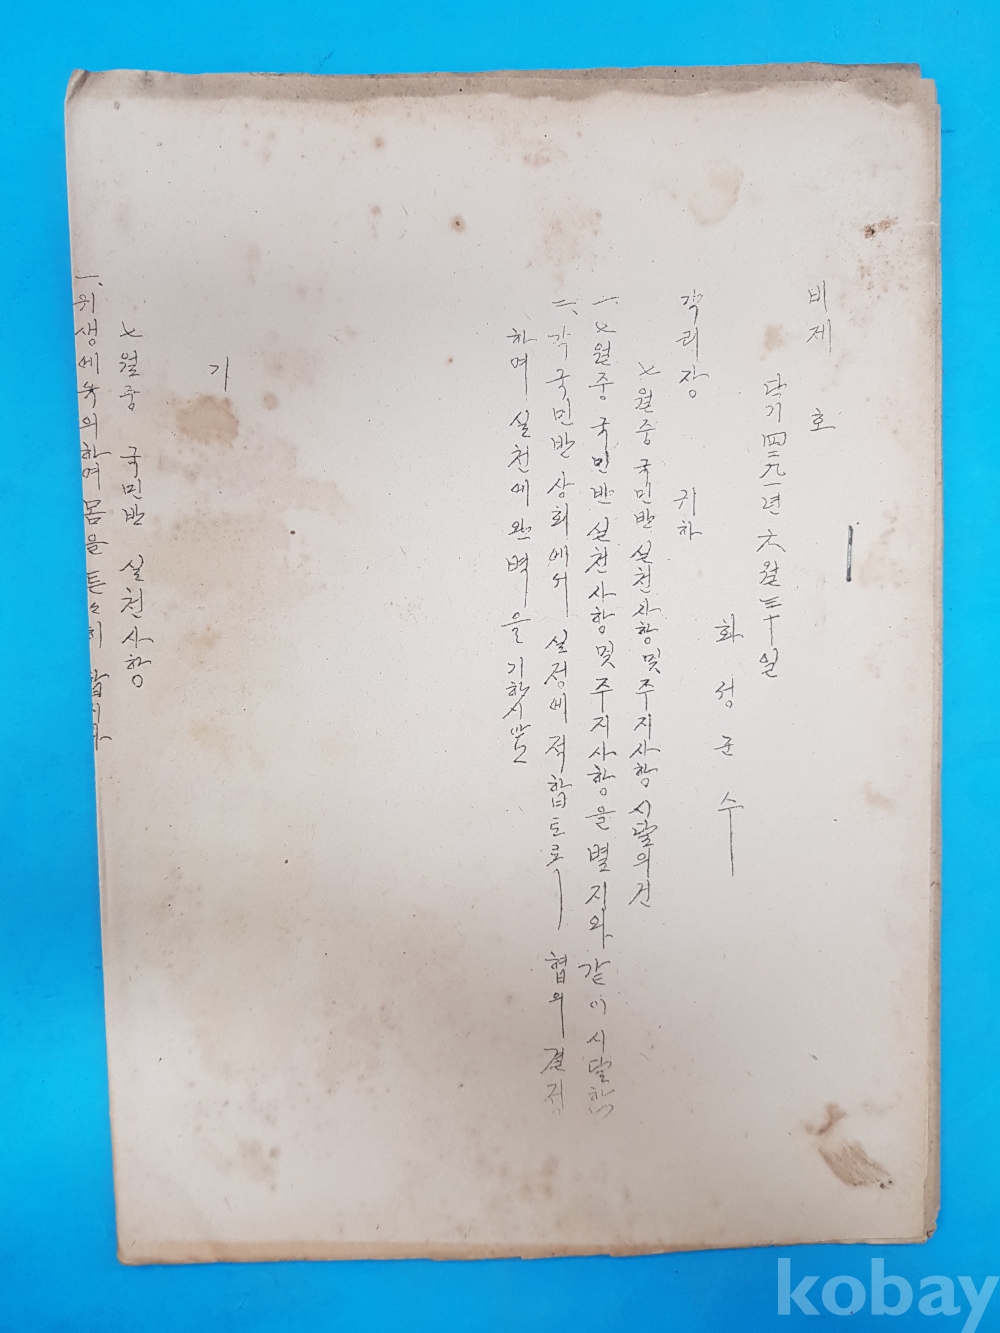 비제 호
단기 四二九一년 六월 三十일
화성군수
각리장 귀하
七월중 국민반 실천사항 및 주지사항 시달의건
一. 七월중 국민반 실천사항 및 주지사항을 별지와 같이 시달함
二. 각 국민반 상회에서 실정에 적합토록 협의결정
하여 실천에 완벽을 기할시 앞
기
七월중 국민반 실천사항
一. 위생에 유의하여 몸을 튼々히 합시다
kobay